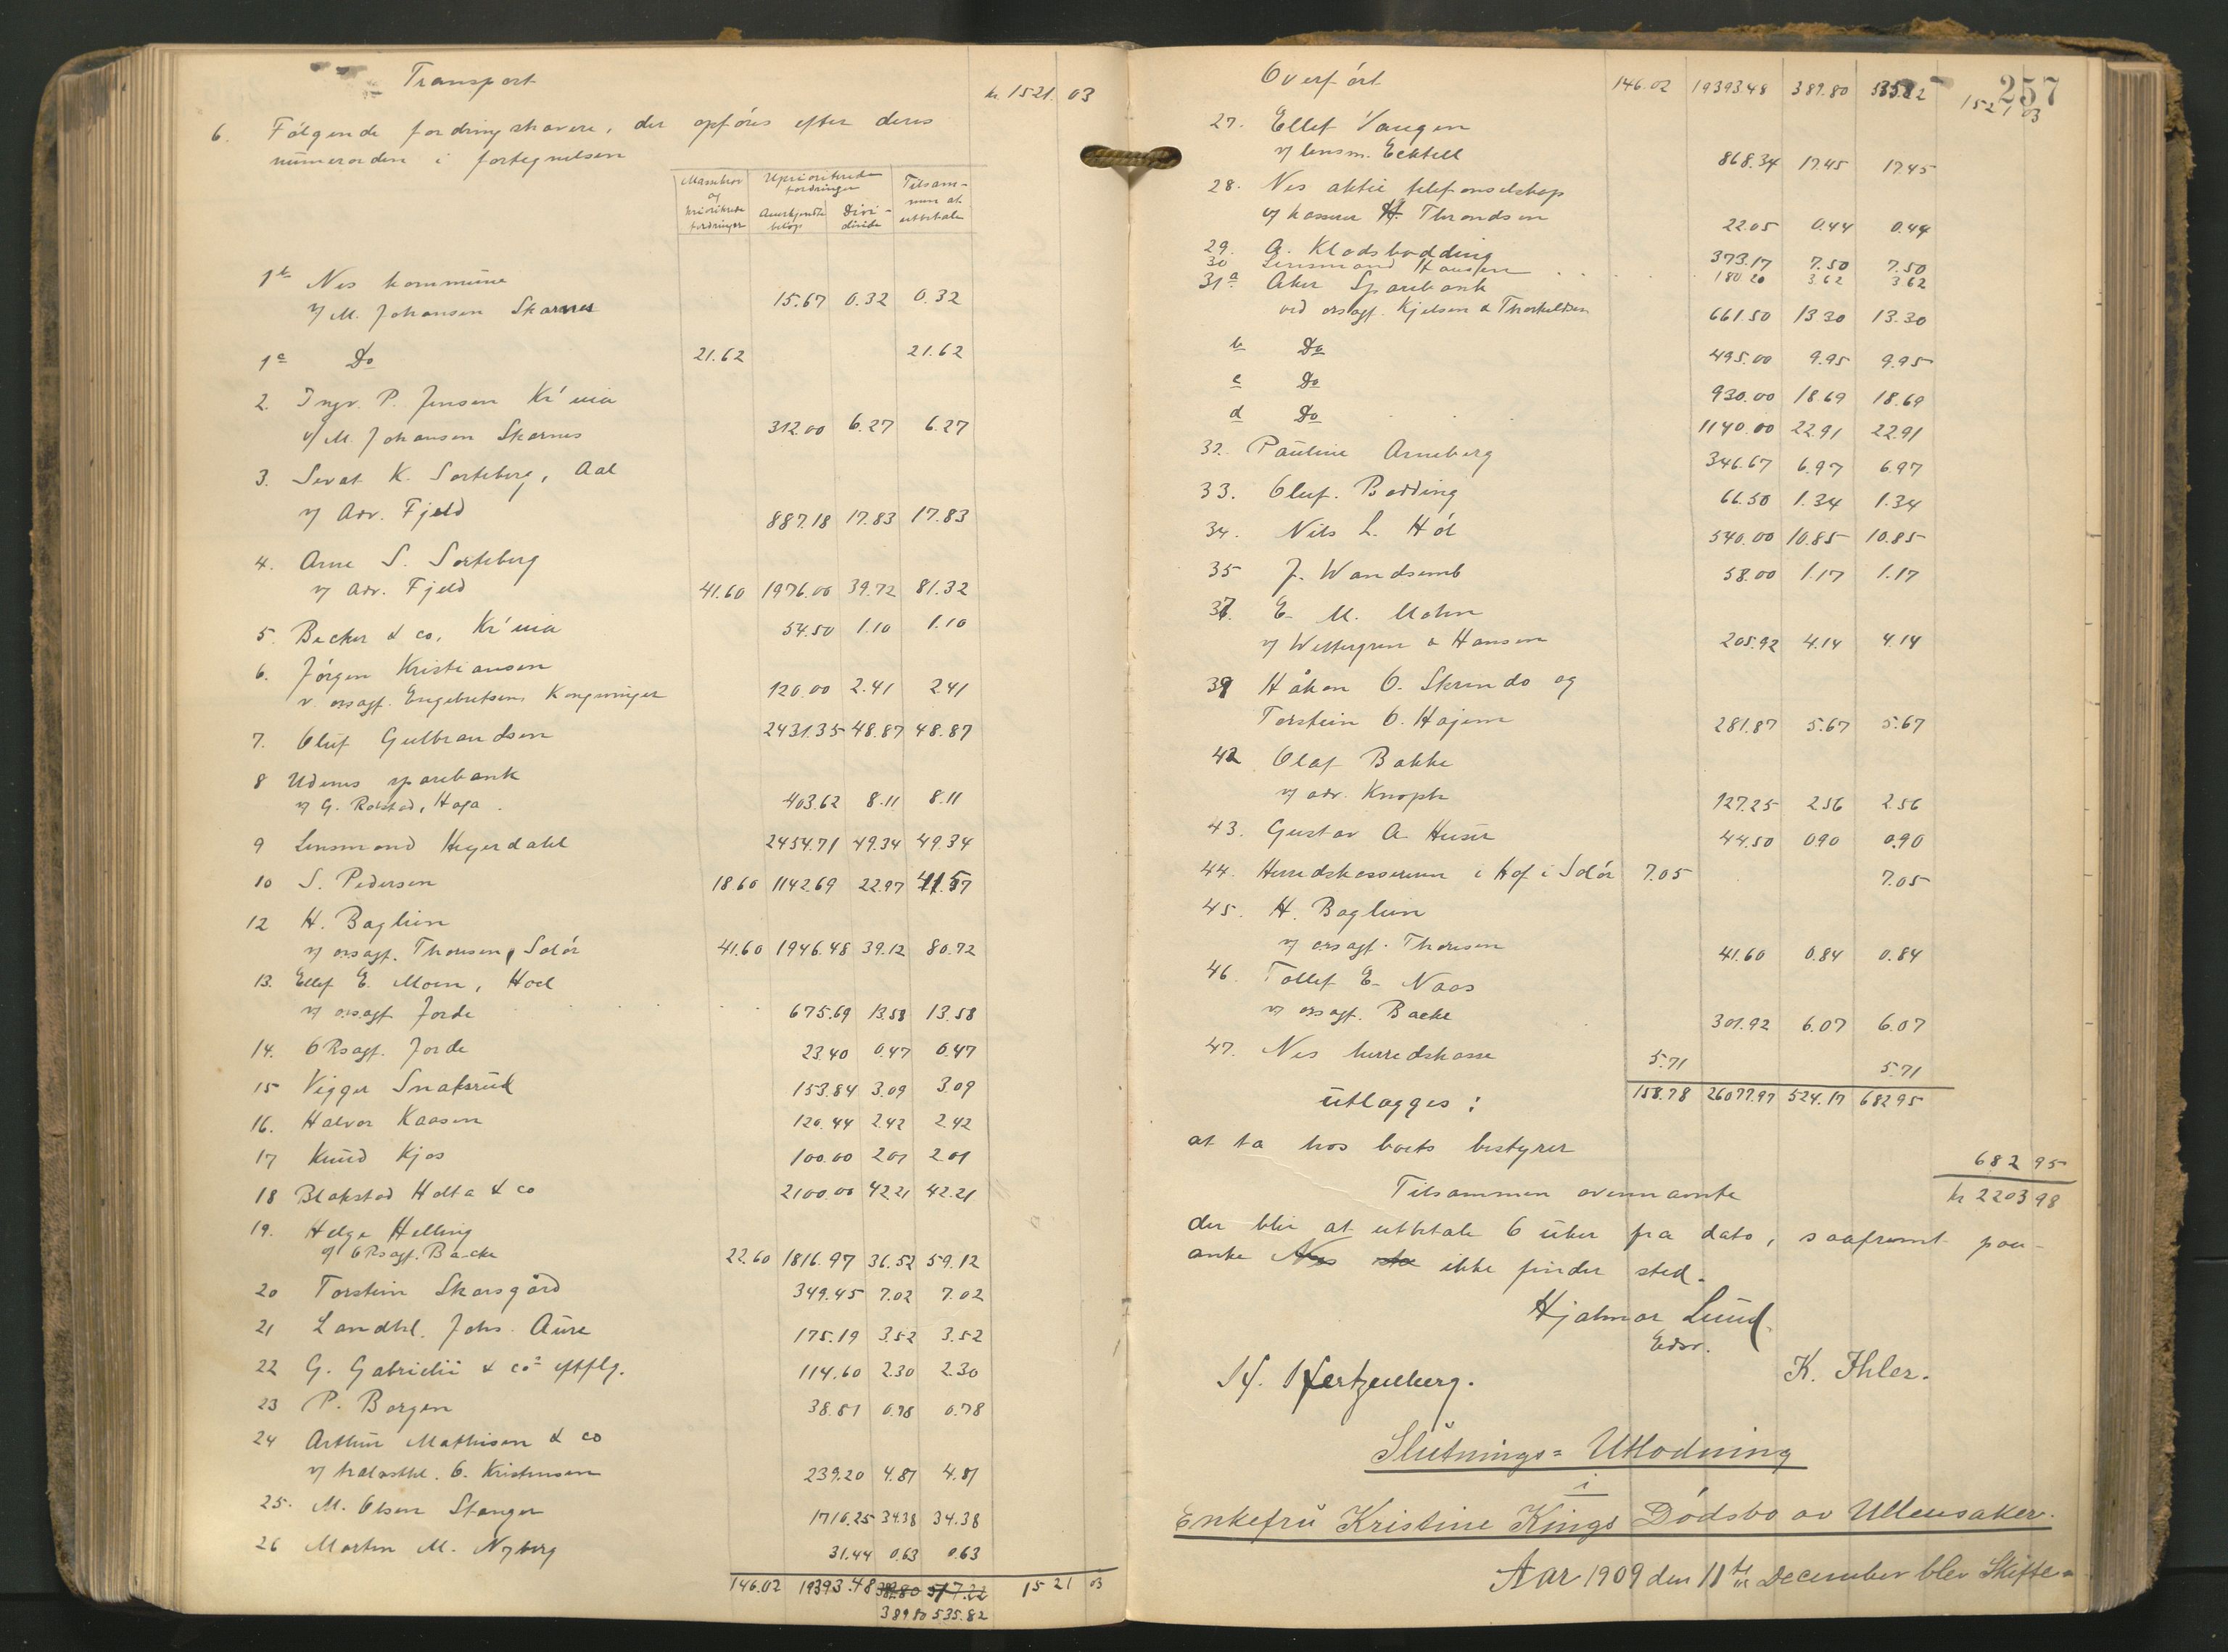 Transport kr. 1521. 03
6. Følgende fordringshavere, der opføres efter deres
nummerorden i fortegnelsen
Massekrav og prioriterte fordringer | Uprioriterede fordringer | Anerkjendte beløp | Dividende | Tilsammen at utbetale
1b Nes kommune
v/ M. Johansen Skarnes 15.67 0.32 0.32
1a Do 21.62 21.62
2. Ingv. P. Jensen Kr'nia
v/ M. Johansen Skarnes 312.00 6.27 6.27
3. Sevat K. Sorteberg, Aal
v/ Adv. Fjeld 887.18 17.83 17.83
4. Arne S. Sorteberg
v/ Adv. Fjeld 41.60 1976.00 39.72 81.32
5. Becker & co, Kr'nia 54.50 1.10 1.10
6. Jørgen Kristiansen
v. orsagf. Engebretsen, Kongsvinger 120.00 2.41 2.41
7. Oluf Gulbrandsen 2431.35 48.87 48.87
8 Udenes sparebank
v/ G. Rolstad, Haga. 403.62 8.11 8.11
9 Lensmand Hegerdahl 2454.71 49.34 49.34
10 S. Pedersen 18.60 1142.69 22.97 41.57
12 H. Baglien
v/ orsagf. Thoresen, Solør 41.60 1946.48 39.12 80.72
13. Ellef E. Moen, Hoel
v/ orsagf. Jorde 675.69 13.58 13.58
14. ORsagf. Jorde 23.40 0.47 0.47
15 Vigger Snaksrud 153.84 3.09 3.09
16. Halvor Kaasen 120.44 2.42 2.42
17 Knud Kjos 100.00 2.01 2.01
18 Blakstad Holta & co 2100.00 42.21 42.21
19. Helge Helling
v/ ORsagf. Backe 22.60 1816.97 36.52 59.12
20 Torstein Skarsgård 349.45 7.02 7.02
21 Landhl. Johs. Aure 175.19 3.52 3.52
22 G. Gabrielii & co's eftflg. 114.60 2.30 2.30
23 P. Borgen 38.81 0.78 0.78
24 Arthur Mathisen & co
v/ O. Kristensen 239.20 4.81 4.81
25. M. Olsen Stanger 1710.25 34.38 34.38
26 Morten M. Nyberg 31.44 0.63 0.63
146.02 19393.48 382.80 517.22 1521 03
389.80 535.82
257
Overført 146.02 19393.48 389.80 535.82 1521 03
27. Ellef Vangen
v/ lensm. Ecktell 868.34 17.45 17.45
28. Nes aktie telefonselskap
v/ kasserer H. Throndsen 22.05 0.44 0.44
29. A. Kladsbødding 373.17 7.50 7.50
30 Lensmand Hansen 180.20 3.62 3.62
31 a Aker Sparebank
ved orsagf. Kjelsen & Thorkildsen 661.50 13.30 13.30
b Do 495.00 9.95 9.95
c Do 930.00 18.69 18.69
d Do 1140.00 22.91 22.91
32. Pauline Arneberg 346.67 6.97 6.97
33. Oluf. Bødding 66.50 1.34 1.34
34. Nils L. Hól 540.00 10.85 10.85
35 J. Wandsemb 58.00 1.17 1.17
37. E. M. Mohn
v/ Wettergren & Hansen 205.92 4.14 4.14
39 Håkon O. Skrindo og
Torstein O. Hajem 281.87 5.67 5.67
42 Olaf Bakke
v/ adv. Knoph 127.25 2.56 2.56
43. Gustav A. Huser 44.50 0.90 0.90
44. Herredskassereren i Hof i Solør 7.05 7.05
45. H. Baglien
v/ orsagf. Thoresen 41.60 0.84 0.84
46. Tollef E. Naas
v/ orsagf. Backe 301.92 6.07 6.07
47. Nes herredskasse 5.71 5.71
utlægges: 158.78 26077.97 524.17 682.95
at ta hos boets bestyrer 682 95
Tilsammen ovennævnte kr 2203 98
der blir at utbetale 6 uker fra dato, saafremt paa-
anke ikke finder sted.
Hjalmar Lund.
Edsv.
H. Hertzenberg. K. Ihler.
Slutnings=Utlodning
i
Enkefru Kristine Kings Dødsbo av Ullensaker.
Aar 1909 den 11te December blev Skifte=